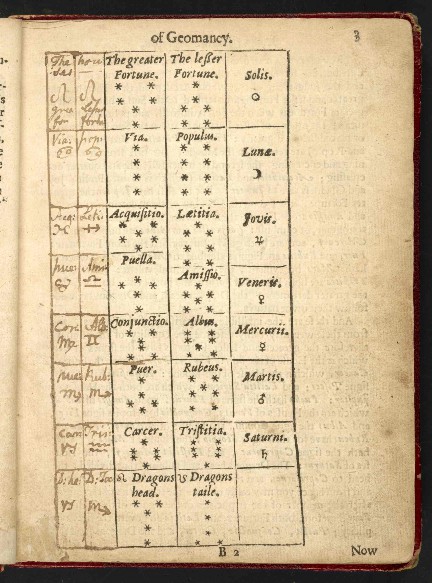 of Geomancy. 3
The hou The greater The leſſer
Fortune. Fortune. Solis.
♌ ♌ ☉
gre Leſs
for fort
Via: pop: Via. Populus. Lunæ.
♋ ♋ ☽
Acq: Leti: Acquiſitio. Lætitia. Jovis.
♓ ♐ ♃
Puella.
Ami Amiſſio. Veneris.
♉ ♎ ♀
Con: Alb: Conjunctio. Albus. Mercurii.
♍ ♊ ☿
Pue: Rub: Puer. Rubeus. Martis.
♏ ♏ ♂
Car: Tris: Carcer. Triſtitia. Saturni.
♑ ♒ ♄
D: he: D: Ta ☊ Dragons ☋ Dragons
head. taile.
♑ ♏
B 2 Now